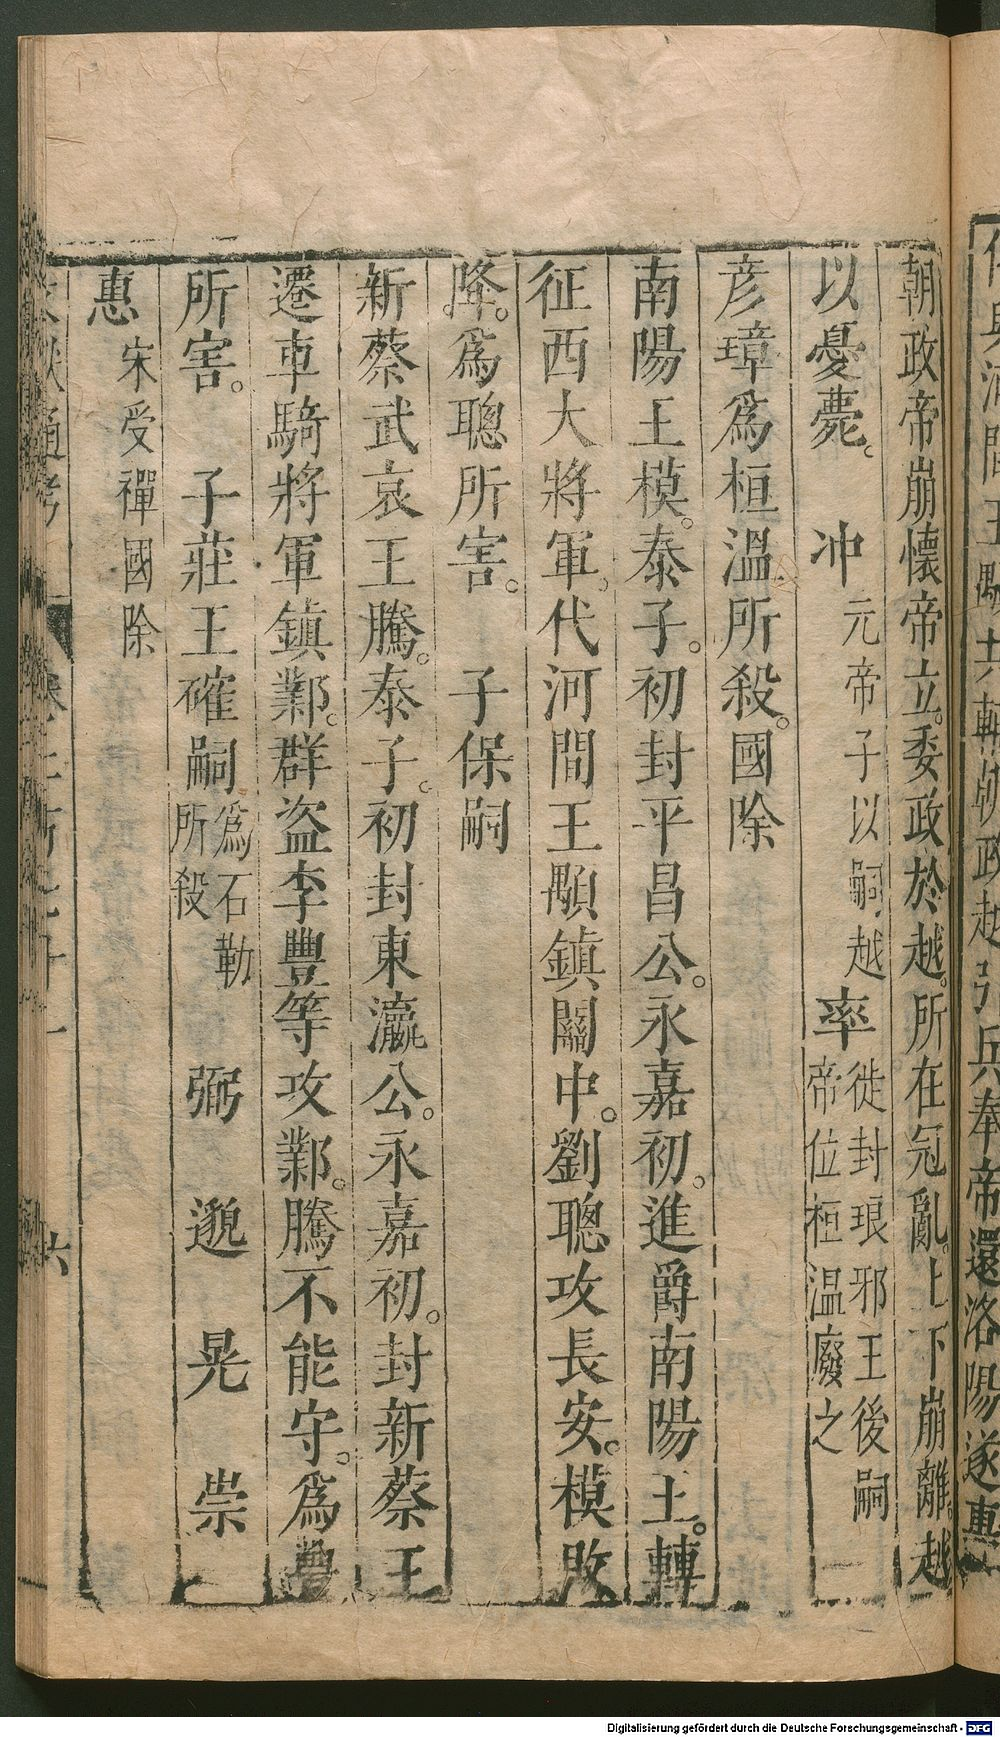 朝政帝崩懷帝立。委政於越。所在冦亂。上下崩離。越
以憂薨。 冲 元帝子以嗣越 率 徙封琅邪王後嗣
帝位桓溫廢之
彦璋爲桓溫所殺。國除
南陽王模。泰子。初封平昌公。永嘉初。進爵南陽王。轉
征西大將軍。代河間王顒鎮關中。劉聰攻長安。模敗
降。爲聰所害。 子保嗣
新蔡武哀王騰。泰子。初封東瀛公。永嘉初。封新蔡王
遷車騎將軍鎮鄴。群盗李豐等攻鄴。騰不能守。爲豊
所害。 子莊王確嗣 爲石勒
所殺 弼 邈 晃 崇
惠 宋受禪國除
通考
六
Digitalisierung gefördert durch die Deutsche Forschungsgemeinschaft - DFG